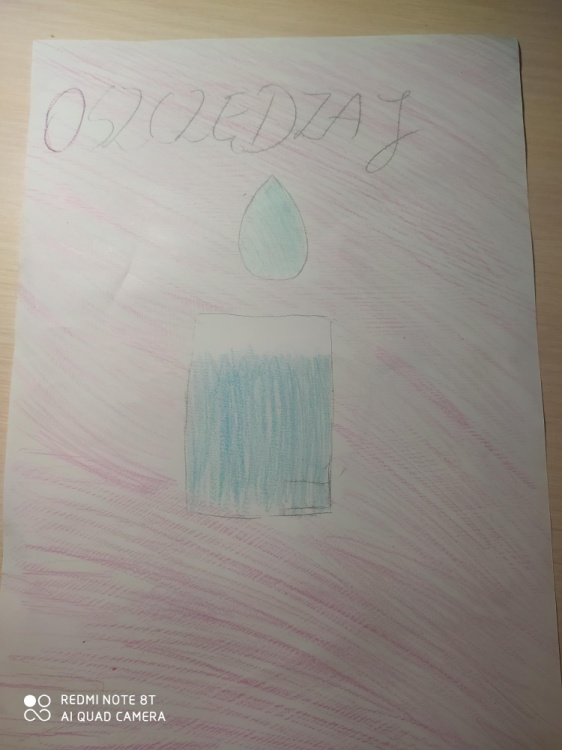 OSZCZĘDZAJ
REDMI NOTE 8T
AI QUAD CAMERA